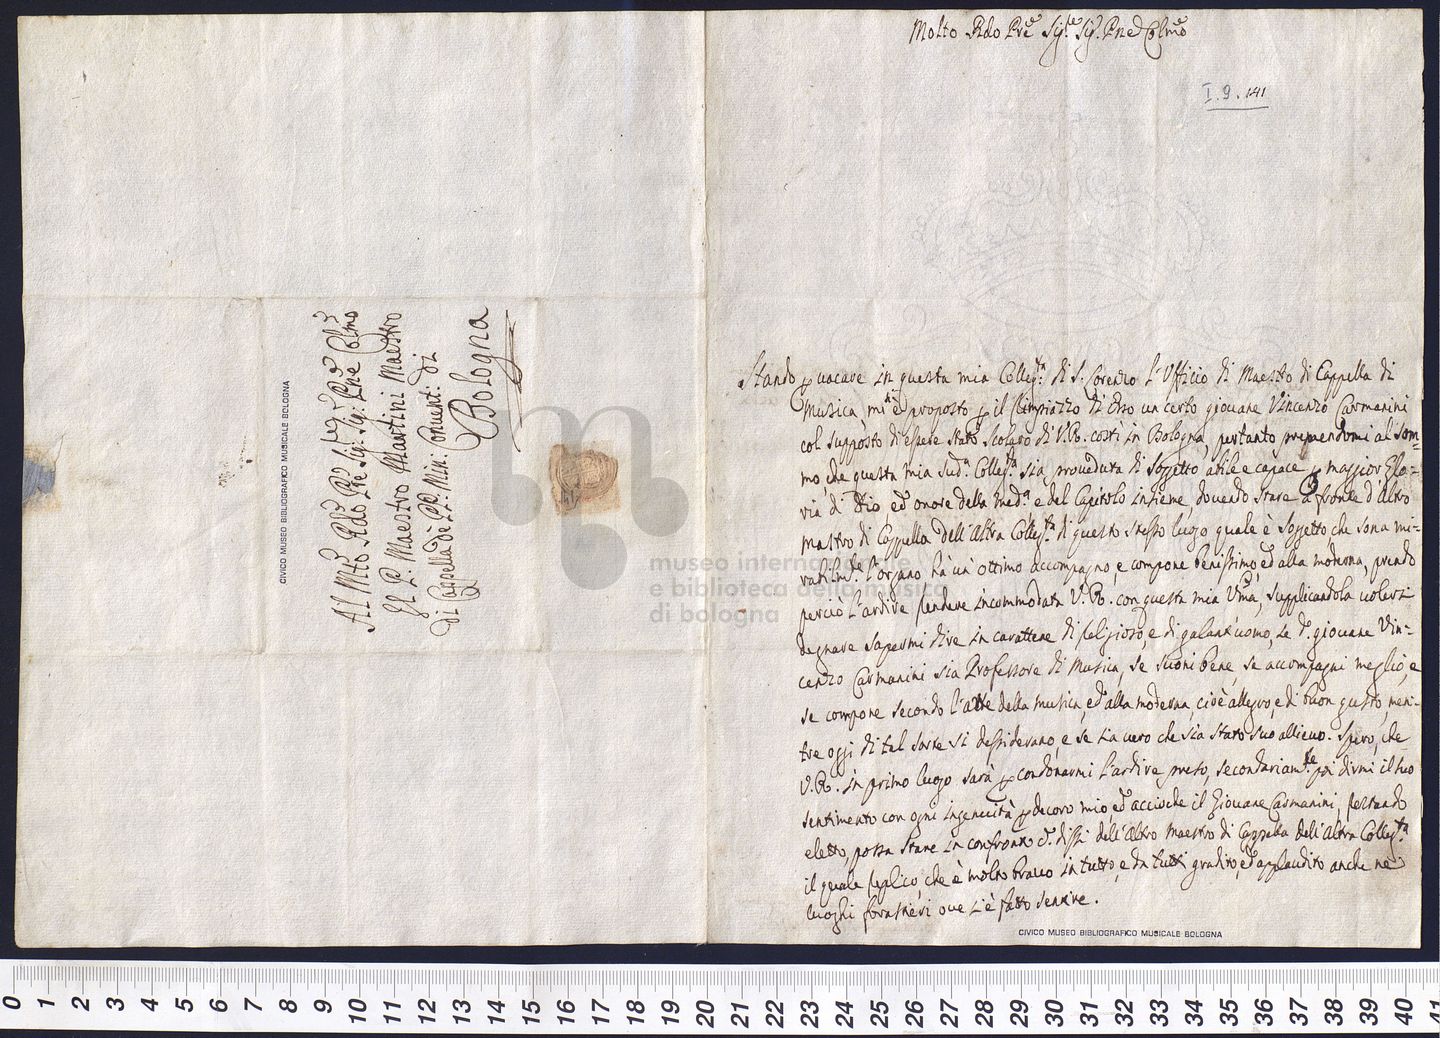 Molto Rdo Pre Sig.re Sig. Pne Colmo
I. 9. 141
Stando p vacare in questa mia Colleg.ta di S. Lorenzo l'Uffizio di Maestro di Cappella di
Musica, mi è proposto p il rimpiazzo di esso un certo giovane Vincenzo Carmanini
col supposto di essere stato scolaro di V.R. costì in Bologna, pertanto premendomi al som-
mo, che questa mia sud.a Colleg.ta sia proveduta di soggetto abile e capace p maggior Glo-
ria di Dio ed onore della med.a e del Capitolo insieme, dovendo stare a fronte d'altro
mastro di Cappella dell'altra Colleg.ta di questo stesso luogo quale è soggetto che sona mi-
rabilm.te l'organo hà un ottimo accompagno, e compone benissimo, ed alla moderna, prendo
perciò l'ardire rendere incommodata V.R. con questa mia Uma, supplicandola volersi
degnare sapermi dire in carattere di religioso, e di galant'uomo, se d.o giovane Vin-
cenzo Carmanini sia Professore di Musica, se suoni bene, se accompagni meglio, e
se compone secondo l'arte della musica, ed alla moderna, cioè allegro, e di buon gusto, men-
tre oggi di tal sorte si desiderano, e se sia vero che sia stato suo allievo. Spero, che
V.R. in primo luogo sarà p condonarmi l'ardire preso, secondariam.te poi dirmi il suo
sentimento con ogni ingenuità p decoro mio, ed acciocche il Giovane Carmanini, restando
eletto, possa stare in confronto c. dissi dell'altro Maestro di Cappella dell'altra Colleg.ta
il quale replico, che è molto bravo in tutto, e da tutti gradito, ed applaudito anche ne
luoghi forastieri ove si è fatto sentire.
CIVICO MUSEO BIBLIOGRAFICO MUSICALE BOLOGNA
Al Mto Rdo Pre Sig. Sig. Pne Colmo
Il P. Maestro Martini Maestro
di Cappella de PP. Min. Convent. di
Bologna
CIVICO MUSEO BIBLIOGRAFICO MUSICALE BOLOGNA
museo internazionale
e biblioteca della musica
di bologna
0 1 2 3 4 5 6 7 8 9 10 11 12 13 14 15 16 17 18 19 20 21 22 23 24 25 26 27 28 29 30 31 32 33 34 35 36 37 38 39 40 41